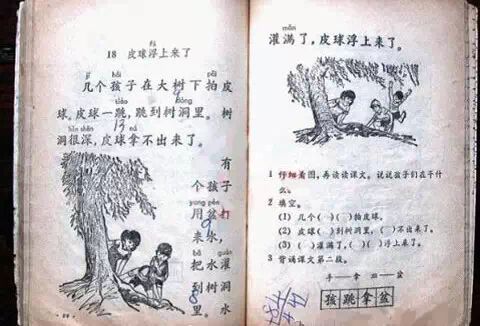 fú
18 皮球浮上来了
jǐ hái pāi
几个孩子在大树下拍皮
tiào dòng
球，皮球一跳，跳到树洞里。树
hěn shēn ná
洞很深，皮球拿不出来了。
有
个孩子
yòng pén
用盆打
来水，
bǎ guàn
把水灌
到树洞
里。水
mǎn
灌满了，皮球浮上来了。
1 仔细看图，再读读课文。说说孩子们在干什
么。
2 填空。
(1) 几个( )( )拍皮球。
(2) 皮球( )到树洞里，( )不出来了。
(3) ( )灌满了，( )浮上来了。
3 背诵课文第二段。
孩 跳 拿 盆